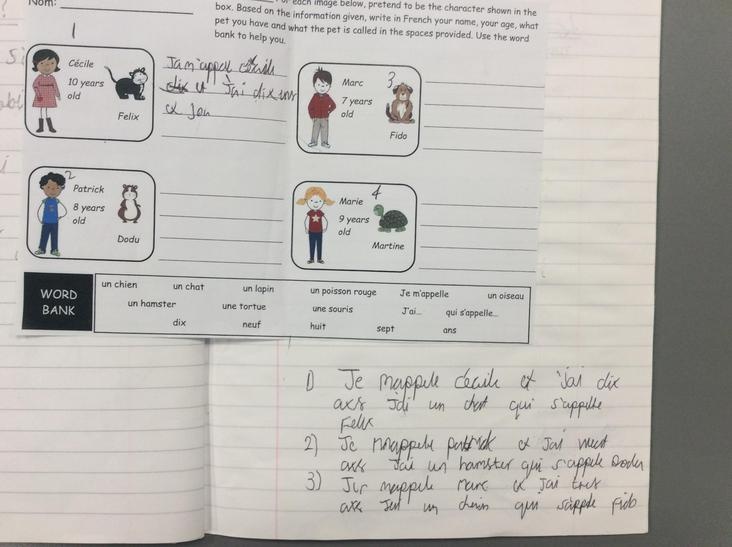 Nom:
For each image below, pretend to be the character shown in the
box. Based on the information given, write in French your name, your age, what
pet you have and what the pet is called in the spaces provided. Use the word
bank to help you.
1
Cécile
10 years
old
Felix
Jam'appel cécile
dix et J'ai dix ans
et Jai
3
Marc
7 years
old
Fido
2
Patrick
8 years
old
Dodu
4
Marie
9 years
old
Martine
WORD
BANK
un chien un chat un lapin un poisson rouge Je m'appelle un oiseau
un hamster une tortue une souris J'ai... qui s'appelle...
dix neuf huit sept ans
1) Je mappele cécile et j'ai dix
J'ai un chat qui s'appelle
Felix
2) Je mappele patrick et Jai
Jai un hamster qui s'appele Dodu
3) mappele Marc et Jai
un qui s'appele Fido